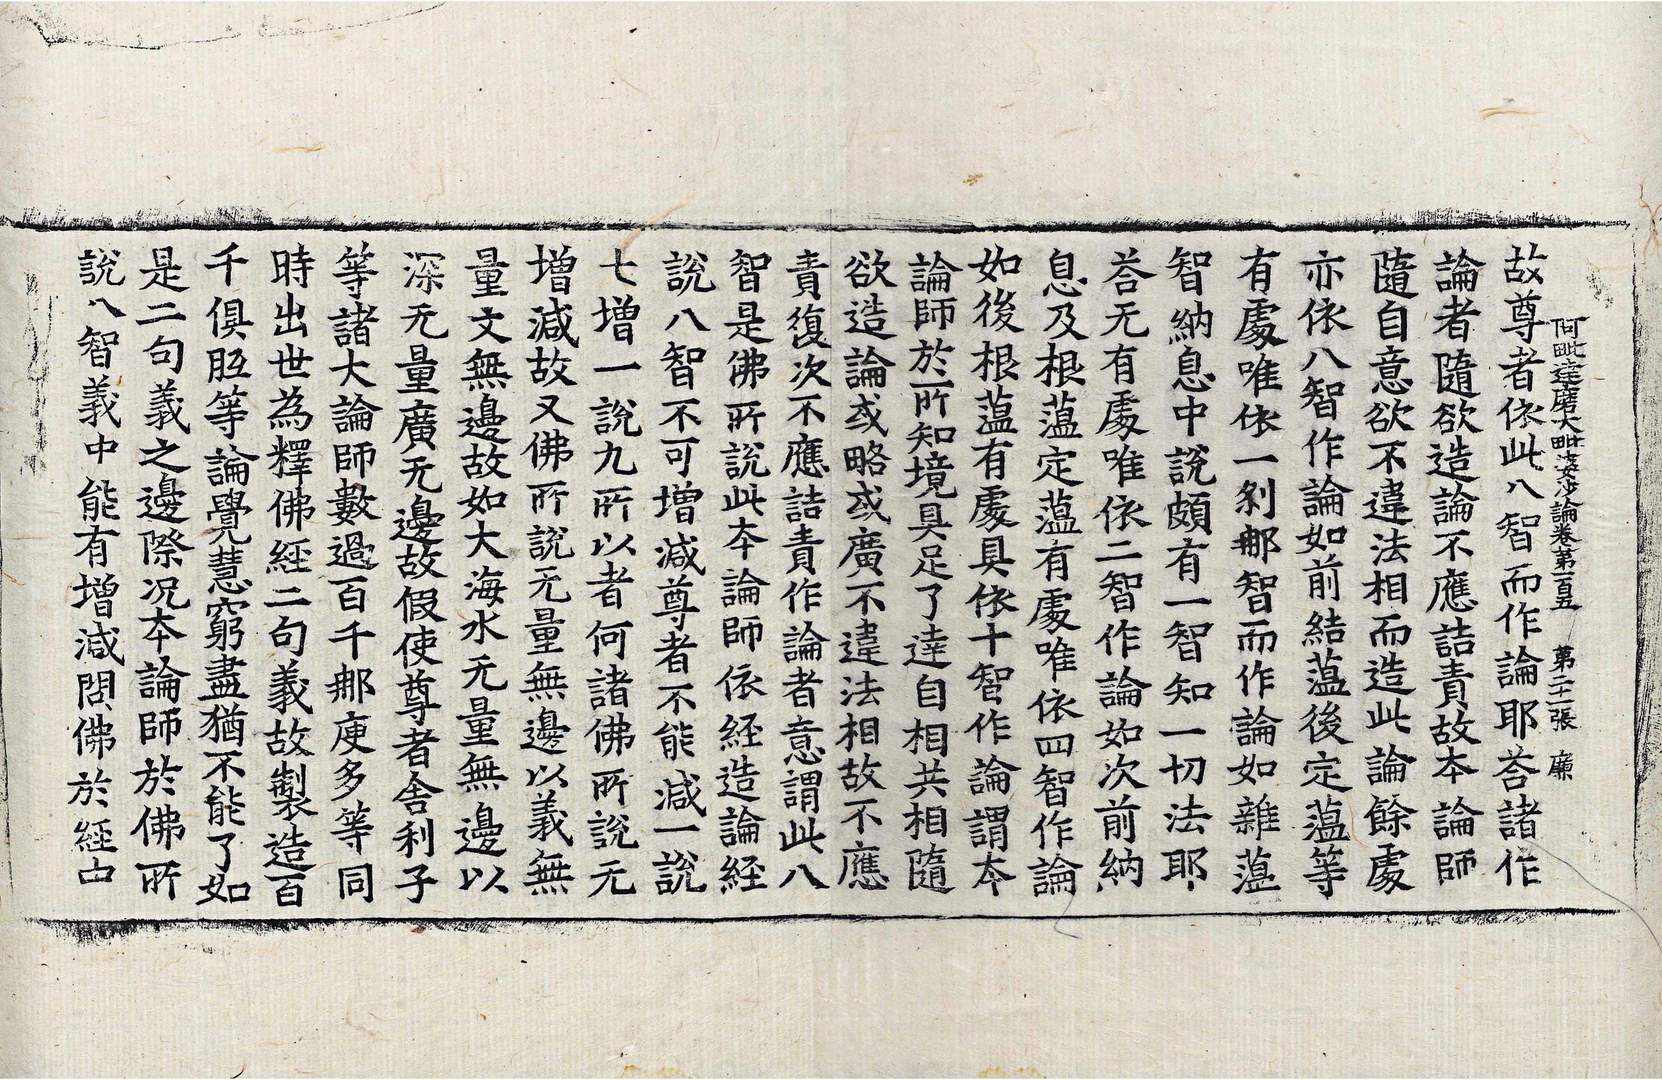 阿毗達磨大毗婆沙論卷第一百五　第二十一張　廉
故尊者依此八智而作論耶荅諸作
論者隨欲造論不應詰責故本論師
隨自意欲不違法相而造此論餘處
亦依八智作論如前結蕰後定蕰等
有處唯依一剎那智而作論如雜蕰
智納息中說頗有一智知一切法耶
荅无有處唯依二智作論如次前納
息及根蕰定蕰有處唯依四智作論
如後根蕰有處具依十智作論謂本
論師於所知境具足了達自相共相隨
欲造論或略或廣不違法相故不應
責復次不應詰責作論者意謂此八
智是佛所說此本論師依經造論經
說八智不可增減尊者不能減一說
七增一說九所以者何諸佛所說无
增減故又佛所說无量無邊以義無
量文無邊故如大海水无量無邊以
深无量廣无邊故假使尊者舍利子
等諸大論師數過百千那庾多等同
時出世為釋佛經二句義故製造百
千俱胝等論覺慧窮盡猶不能了如
是二句義之邊際况本論師於佛所
說八智義中能有增減問佛於經中